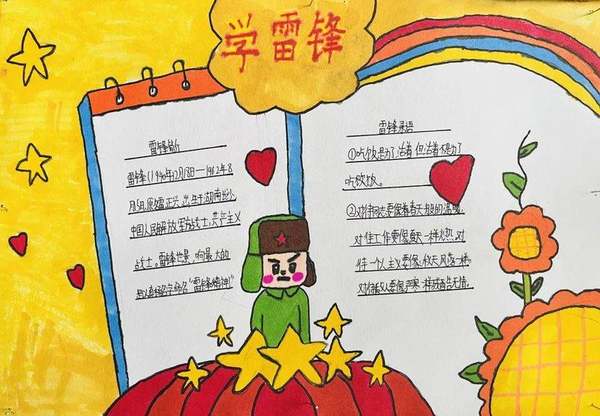 学雷锋
雷锋简介
雷锋(1940年12月18日—1962年8
月15日,原名雷正兴,出生于湖南长沙
中国人民解放军战士,共产主义
战士。雷锋
"雷锋精神"
雷锋录语
①吃饭是为了活着,但活着不是为了
吃饭。
②对待同志要像春天般的温暖,
对待工作要像夏天一样火热,对
待个人主义要像秋天风扫一样
对待敌人要像严寒一样残酷无情。